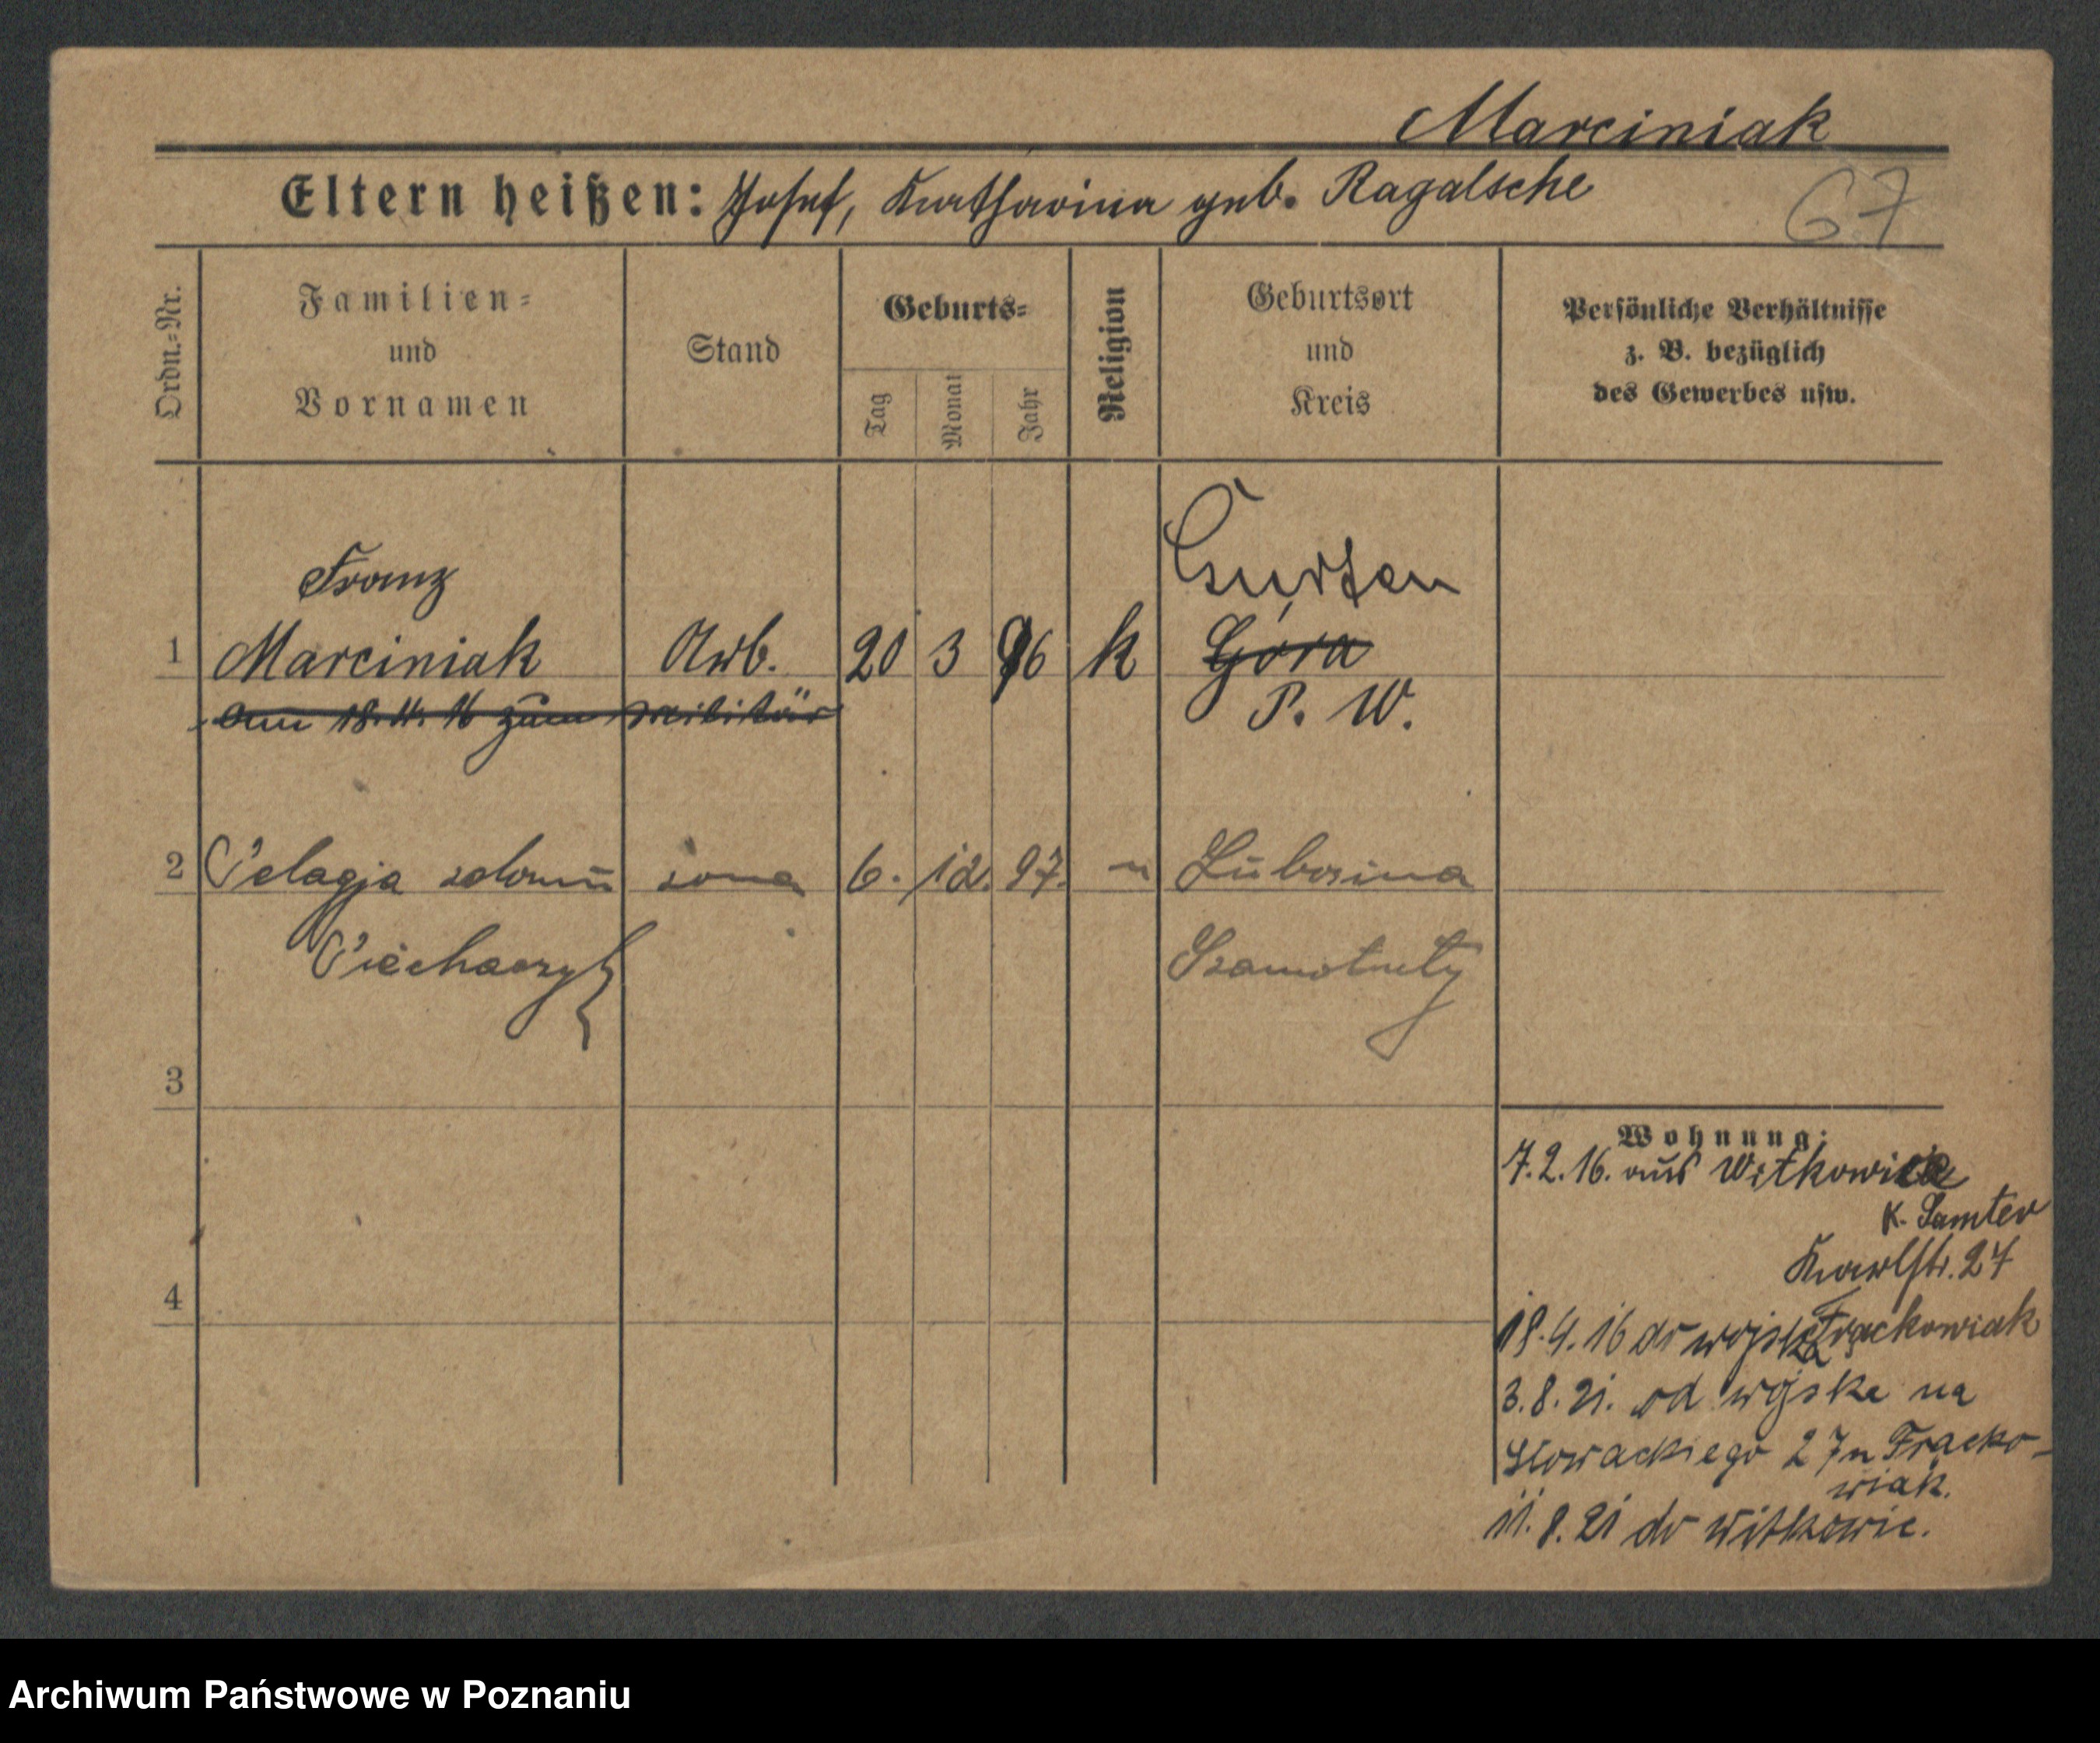 Marciniak
Eltern heißen: Josef, Katharina geb. Ragalsche
67
Ordn.-Nr.
Familien-
und
Vornamen
Stand
Geburts-
Tag
Monat
Jahr
Religion
Geburtsort
und
Kreis
Persönliche Verhältnisse
z. B. bezüglich
des Gewerbes usw.
Franz
1 Marciniak Arb. 20 3 96 k Góra
P. W.
am 18. 4. 16 zum Militär
2 Pelagja żona 6. 12. 97. " Lubosina
Szamotuły
3
4
Wohnung:
7.2.16. aus Witkowice
K. Samter
Karlstr. 27
18.4.16 do wojska Frąckowiak
3.8.21. od wojska na
Słowackiego 27 n Frącko-
wiak.
11.8.21 do Witkowic.
Archiwum Państwowe w Poznaniu